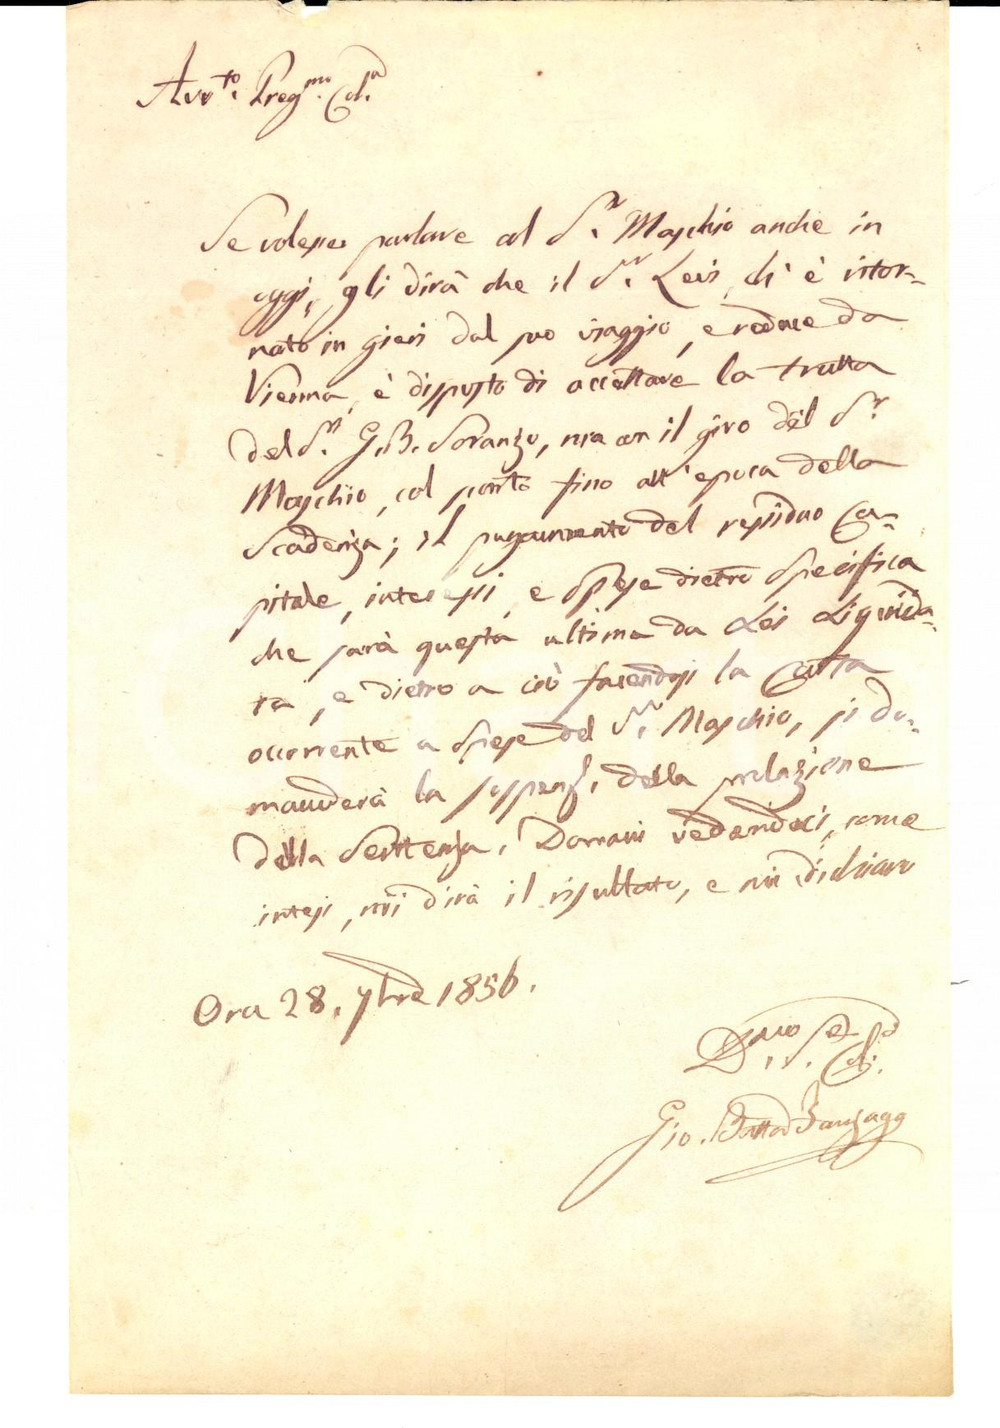 Avv.to Preg.mo Col.a
Se volesse parlare al S.r Maschio anche in
oggi, gli dirà che il S.r Levi, ch'è ritor-
nato in gieri dal suo viaggio, e reduce da
Vienna, è disposto di accettare la tratta
del S.r G. B. Soranzo, ma con il giro del S.r
Maschio, col sconto fino all'epoca della
Scadenza; il pagamento del residuo Ca-
pitale, interessi, e spese dietro specifica
che sarà questa ultima da Lei Liquida-
ta, e dietro a ciò facendosi la Carta
occorrente a spese del S.r Maschio, si do-
manderà la sospens. della prolazione
della Sentenza. Domani vedendoci, come
intesi, mi dirà il risultato, e mi dichiaro
Ora 28. 7bre 1856.
D.mo Se Col.a
Gio. Batta